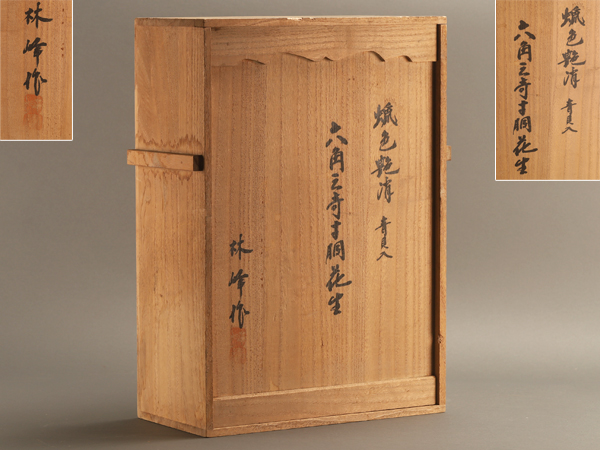 蝋色艶消 青貝入
六角三奇寸胴花生
林峰作
林峰作
蝋色艶消 青貝入
六角三奇寸胴花生